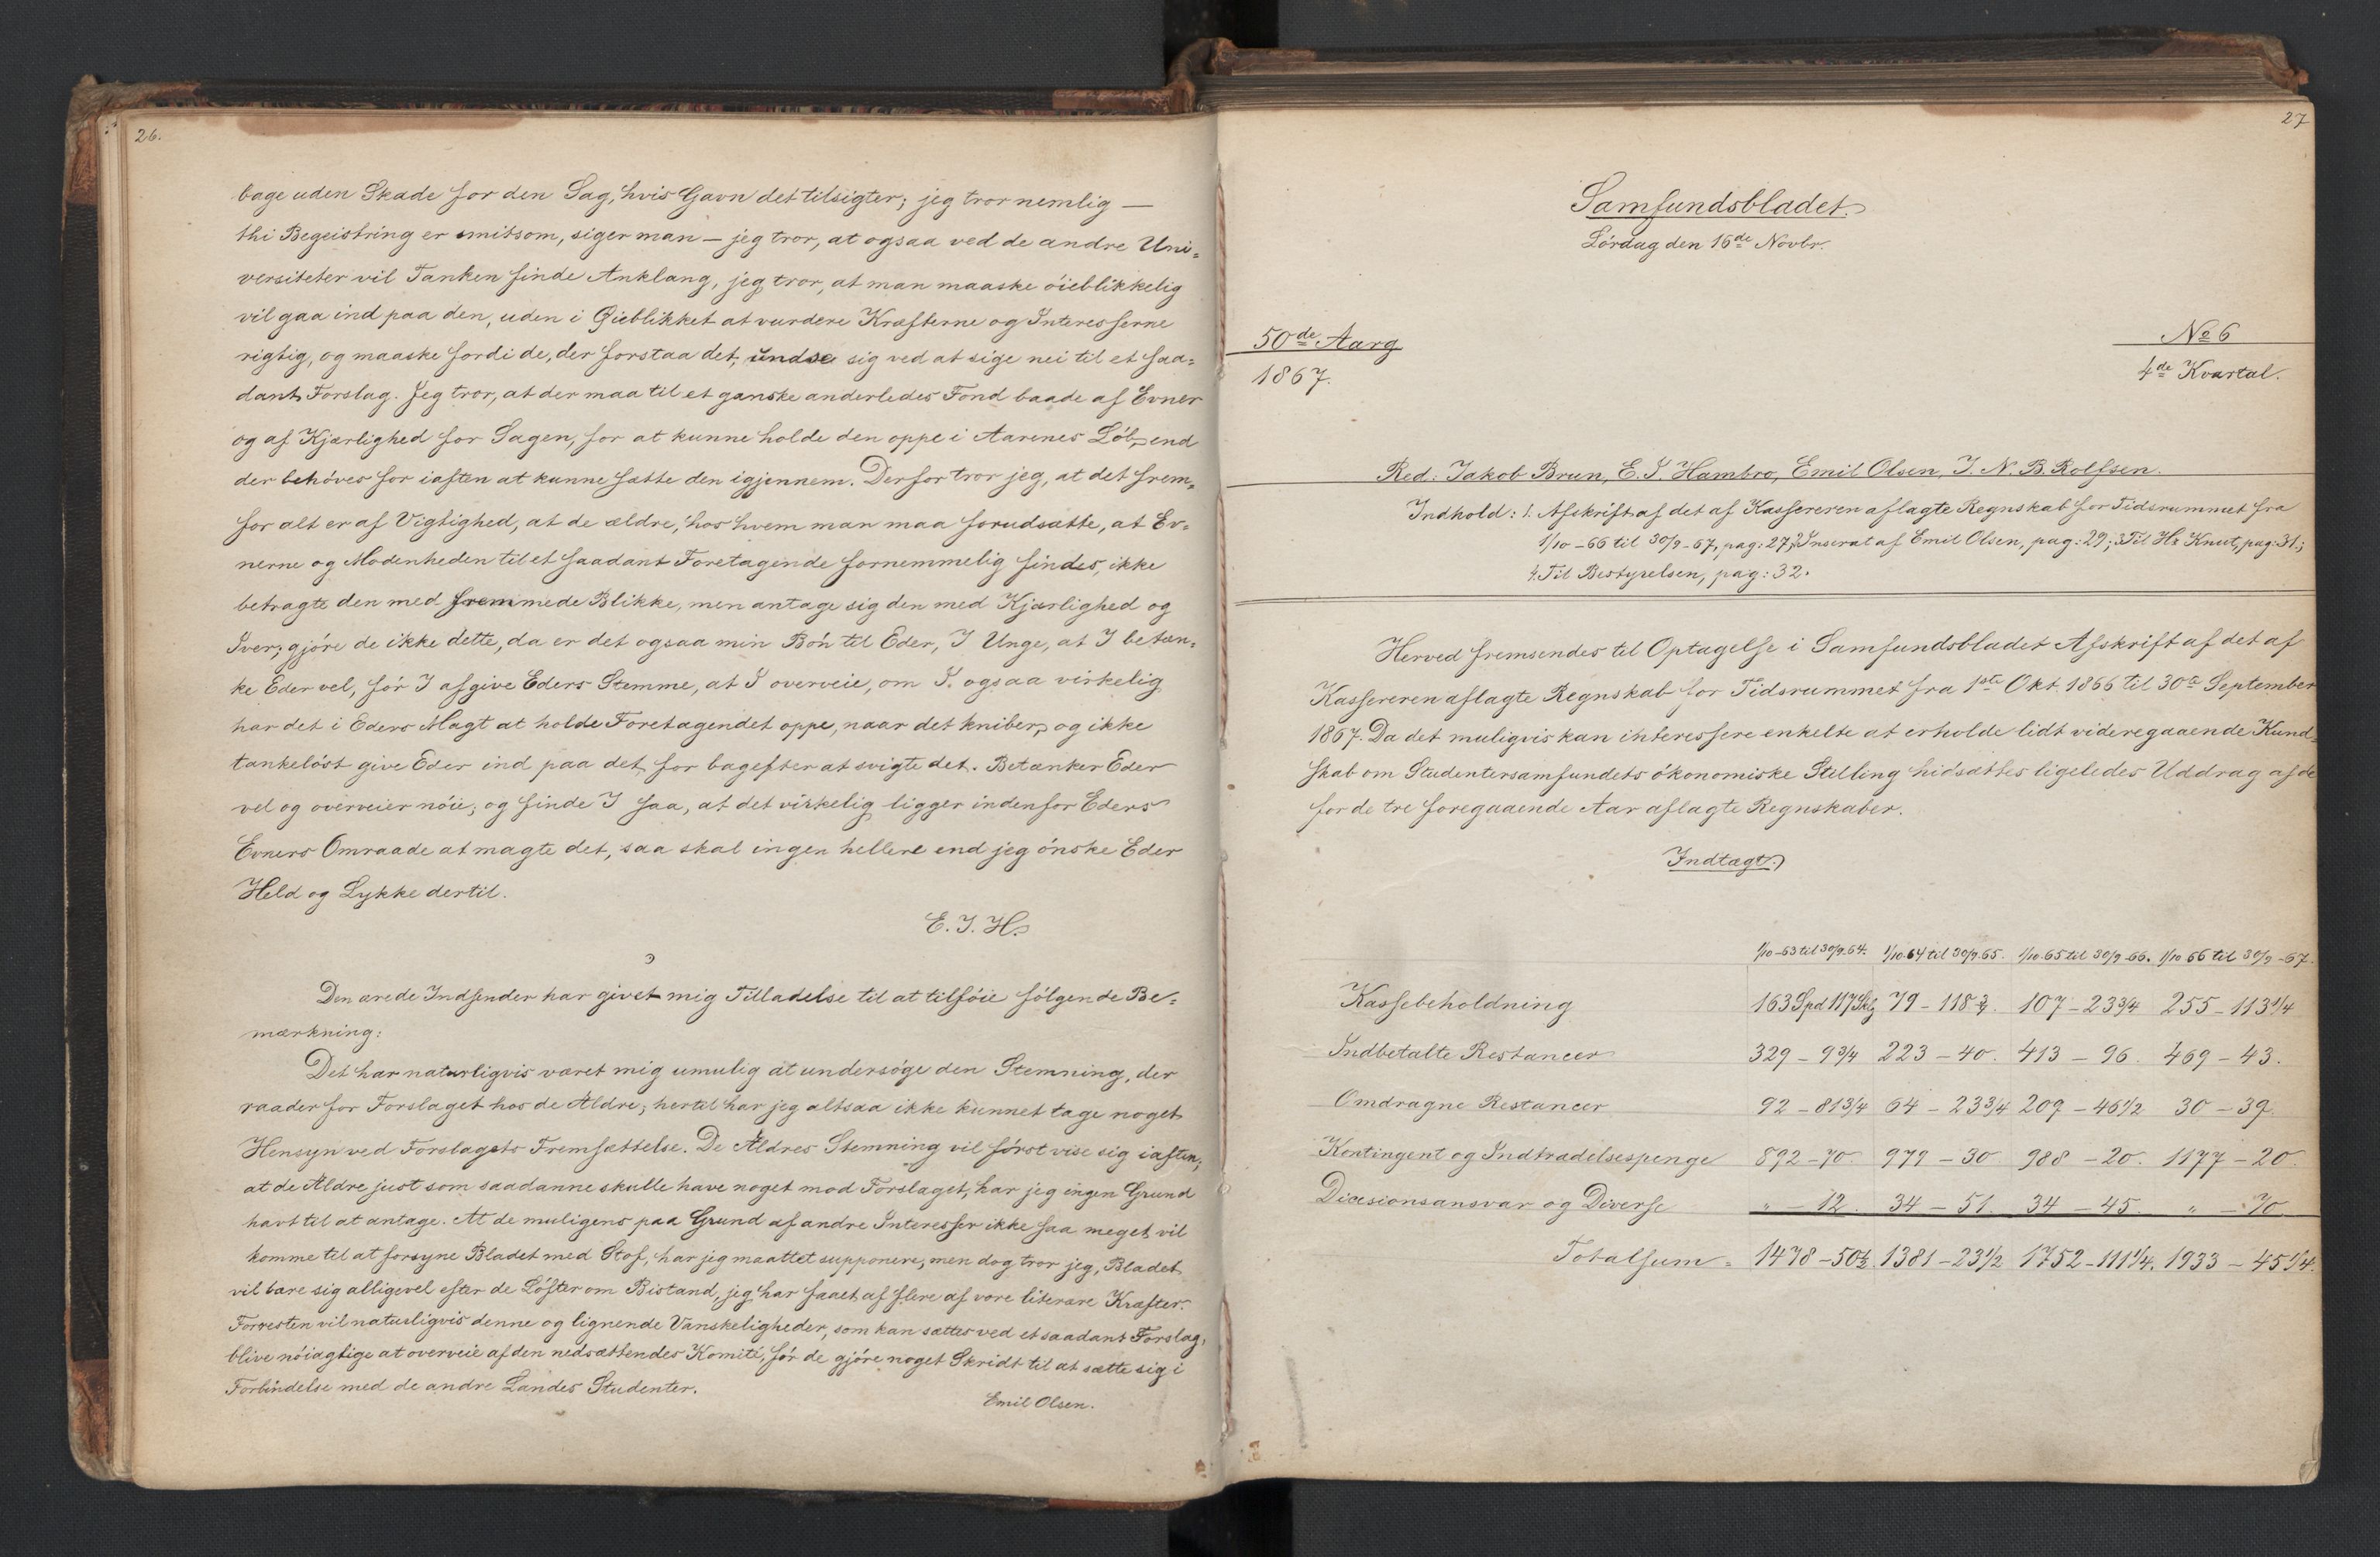 26.
bage uden Skade for den Sag, hvis Gavn det tilsigter; jeg tror nemlig —
thi Begeistring er smitsom, siger man — jeg tror, at ogsaa ved de andre Uni-
versiteter vil Tanken finde Anklang, jeg tror, at man maaske öieblikkelig
vil gaa ind paa den, uden i Øieblikket at vurdere Kræfterne og Interesserne
rigtig, og maaske fordi de, der forstaa det, undse sig ved at sige nei til et saa-
dant Forslag. Jeg tror, at der maa til et ganske anderledes Fond baade af Evner
og af Kjærlighed for Sagen, for at kunne holde den oppe i Aarenes Löb, end
der behöves for iaften at kunne sætte den igjennem. Derfor tror jeg, at det frem-
for alt er af Vigtighed, at de ældre, hos hvem man maa forudsætte, at Ev-
nerne og Modenheden til et saadant Foretagende fornemmelig findes, ikke
betragte den med fremmede Blikke, men antage sig den med Kjærlighed og
Iver; gjöre de ikke dette, da er det ogsaa min Bön til Eder, I Unge, at I betæn-
ke Eder vel, för I afgive Eders Stemme, at I overveie, om I ogsaa virkelig
har det i Eders Magt at holde Foretagendet oppe, naar det kniber, og ikke
tankelöst give Eder ind paa det for bagefter at svigte det. Betænker Eder
vel og overveier nöie; og finde I saa, at det virkelig ligger indenfor Eders
Evners Omraade at magte det, saa skal ingen hellere end jeg önske Eder
Held og Lykke dertil.
E. I. H.
Den ærede Indsender har givet mig Tilladelse til at tilföie fölgende Be-
mærkning:
Det har naturligvis været mig umulig at undersöge den Stemning, der
raader for Forslaget hos de Ældre; hertil har jeg altsaa ikke kunnet tage noget
Hensyn ved Forslagets Fremsættelse. De Ældres Stemning vil först vise sig iaften;
at de Ældre just som saadanne skulle have noget mod Forslaget, har jeg ingen Grund
havt til at antage. At de muligens paa Grund af andre Interesser ikke saa meget vil
komme til at forsyne Bladet med Stof, har jeg maattet supponere, men dog tror jeg, Bladet
vil bære sig alligevel efter de Löfter om Bistand, jeg har faaet af flere af vore literære Kræfter.
Forresten vil naturligvis denne og lignende Vanskeligheder, som kan sættes ved et saadant Forslag,
blive nöiagtige at overveie af den nedsættendes Komité, för de gjöre noget Skridt til at sætte sig i
Forbindelse med de andre Landes Studenter.
Emil Olsen.
27
Samfundsbladet.
Lördag den 16de Novbr.
50de Aarg
1867.
No 6
4de Kvartal.
Red: Jakob Brun, E. I. Hambro, Emil Olsen, J. N. B. Rolfsen.
Indhold: 1. Afskrift af det af Kassereren aflagte Regnskab for Tidsrummet fra
1/10-66 til 30/9-67, pag: 27; 2. Inserat af Emil Olsen, pag: 29; 3. Til Hr Knut, pag: 31.;
4. Til Bestyrelsen, pag: 32.
Herved fremsendes til Optagelse i Samfundsbladet Afskrift af det af
Kassereren aflagte Regnskab for Tidsrummet fra 1ste Okt. 1866 til 30te September
1867. Da det muligvis kan interessere enkelte at erholde lidt videregaaende Kund-
skab om Studentersamfundets ökonomiske Stilling hidsættes ligeledes Uddrag af de
for de tre foregaaende Aar aflagte Regnskaber.
Indtægt.
1/10-63 til 30/9-64. 1/10-64 til 30/9-65. 1/10-65 til 30/9-66. 1/10 66 til 30/9-67.
Kassebeholdning 163 Spd 117 Sk 79 - 118 3/4. 107 - 23 3/4 255 - 113 1/4
Indbetalte Restancer 329 - 9 3/4 223 - 40. 413 - 96. 469 - 43.
Omdragne Restancer 92 - 81 3/4 64 - 23 3/4 209 - 46 1/2 30 - 39.
Kontingent og Indtrædelsespenge 892 - 70. 979 - 30 988 - 20. 1177 - 20.
Decisionsansvar og Diverse " - 12. 34 - 51. 34 - 45. " - 70
Totalsum = 1478 - 50 1/2. 1381 - 23 1/2 1752 - 111 1/4. 1933 - 45 1/4.